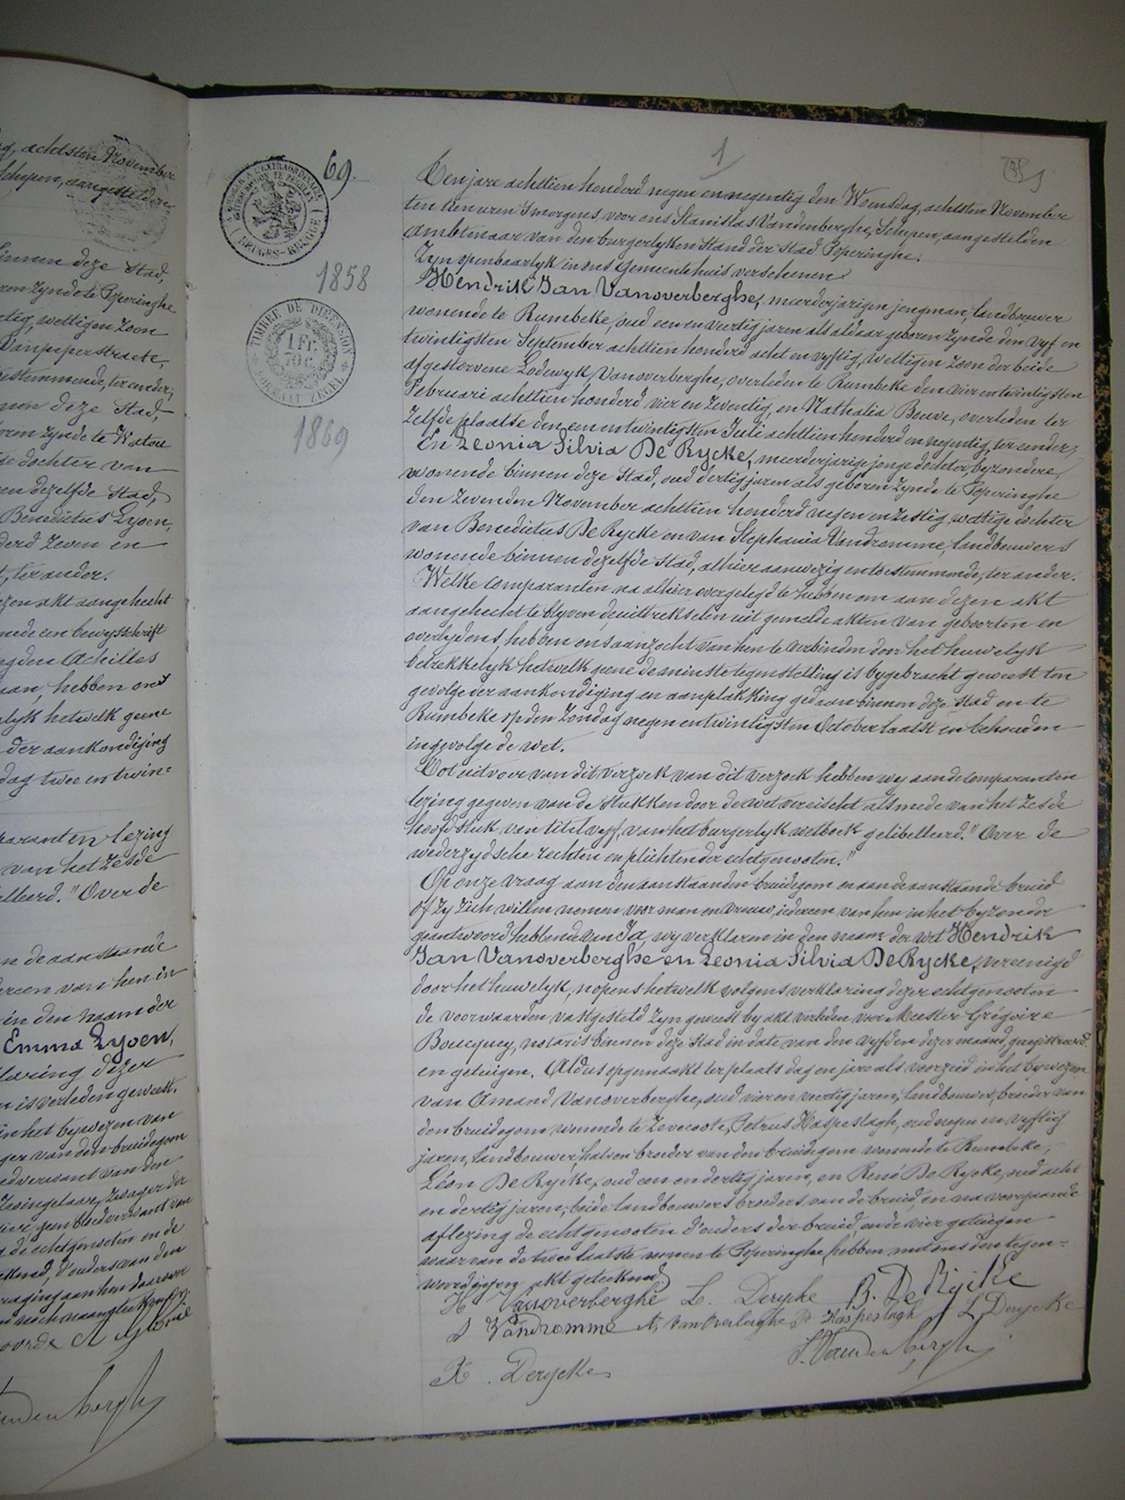 ag, achtsten November
Schepen, aangestelden
binnen deze Stad,
ren zynde te Poperinghe
tig, wettigen zoon
Vanpeperstraete,
estemmende, ter eender,
nen deze Stad,
ren zynde te Watou
de dochter van
en dezelfde Stad,
Benedictus Lyoen,
derd zeven en
t, ter ander.
ezen akt aangehecht
mede een bewysschrift
gden Achilles
aan, hebben ons
elyk hetwelk geene
der aankondiging
dag twee en twin=
paranten lezing
van het zesde
elleerd. "Over de
n de aanstaande
ereen van hen in
in den naam der
Emma Lyoen,
laring dezer
n is verleden geweest.
in het bywezen van
ger van den bruidegom
edverwant van den
Zwingelaar, zwager der
geen bloedverwant van
de echtgenooten en de
d'ouders van den
69.
TIMBRE A L'EXTRAORDINAIRE
BRUGES-BRUGGE
1858
TIMBRE DE DIMENSION
1 FR
FORMAAT ZEGEL
1869
1
Ten jare achttien honderd negen en negentig den Woensdag, achtsten November
ten tien uren 's morgens, voor ons Stanislas Vandenberghe, Schepen, aangestelden
Ambtenaar van den burgerlyken Stand der Stad Poperinghe.
Zyn openbaarlyk in ons Gemeentehuis verschenen
Hendrik Jan Vanoverberghe, meerderjarigen jongman, landbouwer
wonende te Rumbeke, oud een en veertig jaren als aldaar geboren zynde den vyf en
twintigsten September achttien honderd acht en vyftig, wettigen zoon der beide
afgestorvene Lodewyk Vanoverberghe, overleden te Rumbeke den vier en twintigsten
Februari achttien honderd vier en zeventig, en Nathalia Bouve, overleden ter
zelfde plaatse den een en twintigsten Juli achttien honderd en negentig, ter eender,
En Leonia Silvia De Rycke, meerderjarige jonge dochter, byzondere,
wonende binnen deze Stad, oud dertig jaren als geboren zynde te Poperinghe
den zevenden November achttien honderd negen en zestig, wettige dochter
van Benedictus De Rycke en van Stephania Vandromme, landbouwers
wonende binnen dezelfde Stad, alhier aanwezig en toestemmende, ter ander.
Welke Comparanten na alhier overgelegd te hebben om aan dezen akt
aangehecht te blyven de uittrekselen uit gemelde akten van geboorten en
overlydens, hebben ons aanzocht van hen te verbinden door het huwelyk
betrekkelyk hetwelk geene de minste tegenstelling is bygebracht geweest ten
gevolge der aankondiging en aanplakking gedaan binnen deze Stad en te
Rumbeke op den Zondag negen en twintigsten October laatst en behouden
ingevolge de wet.
Tot uitvoer van dit verzoek van dit verzoek hebben wy aan de Comparanten
lezing gegeven van de stukken door de wet vereischt alsmede van het zesde
hoofdstuk van titel vyf, van het burgerlyk wetboek gelibelleerd. "Over de
wederzydsche rechten en plichten der echtgenooten."
Op onze vraag aan den aanstaanden bruidegom en aan de aanstaande bruid
of zy zich willen nemen voor man en vrouw, iedereen van hen in het byzonder
geantwoord hebbende van Ja, wy verklaren in den naam der wet Hendrik
Jan Vanoverberghe en Leonia Silvia De Rycke, vereenigd
door het huwelyk, nopens hetwelk volgens verklaring dezer echtgenooten
de voorwaarden vastgesteld zyn geweest by akt verleden voor Meester Grégoire
Boucquey, notaris binnen deze stad in date van den vyfden dezer maand, geregistreerd
en getuigen. Aldus opgemaakt ter plaats dag en jare als voorzeid in het bywezen
van Amand Vanoverberghe, oud vier en veertig jaren, landbouwer, broeder van
den bruidegom wonende te Zevecoote, Petrus Haspeslagh, oud negen en vyftig
jaren, landbouwer, halven broeder van den bruidegom wonende te Rumbeke,
Léon De Rycke, oud een en dertig jaren, en René De Rycke, oud acht
en dertig jaren, beide landbouwers broeders van de bruid, en na voorgaande
aflezing de echtgenooten d'ouders der bruid en de vier getuigen
waarvan de twee laatste wonen te Poperinghe, hebben met ons den tegen=
woordigen akt geteekend
H Vanoverberghe L. Derycke B. De Rycke
S Vandromme A. Vanoverberghe P Haspeslagh L Derycke
R. Derycke S. Vandenberghe